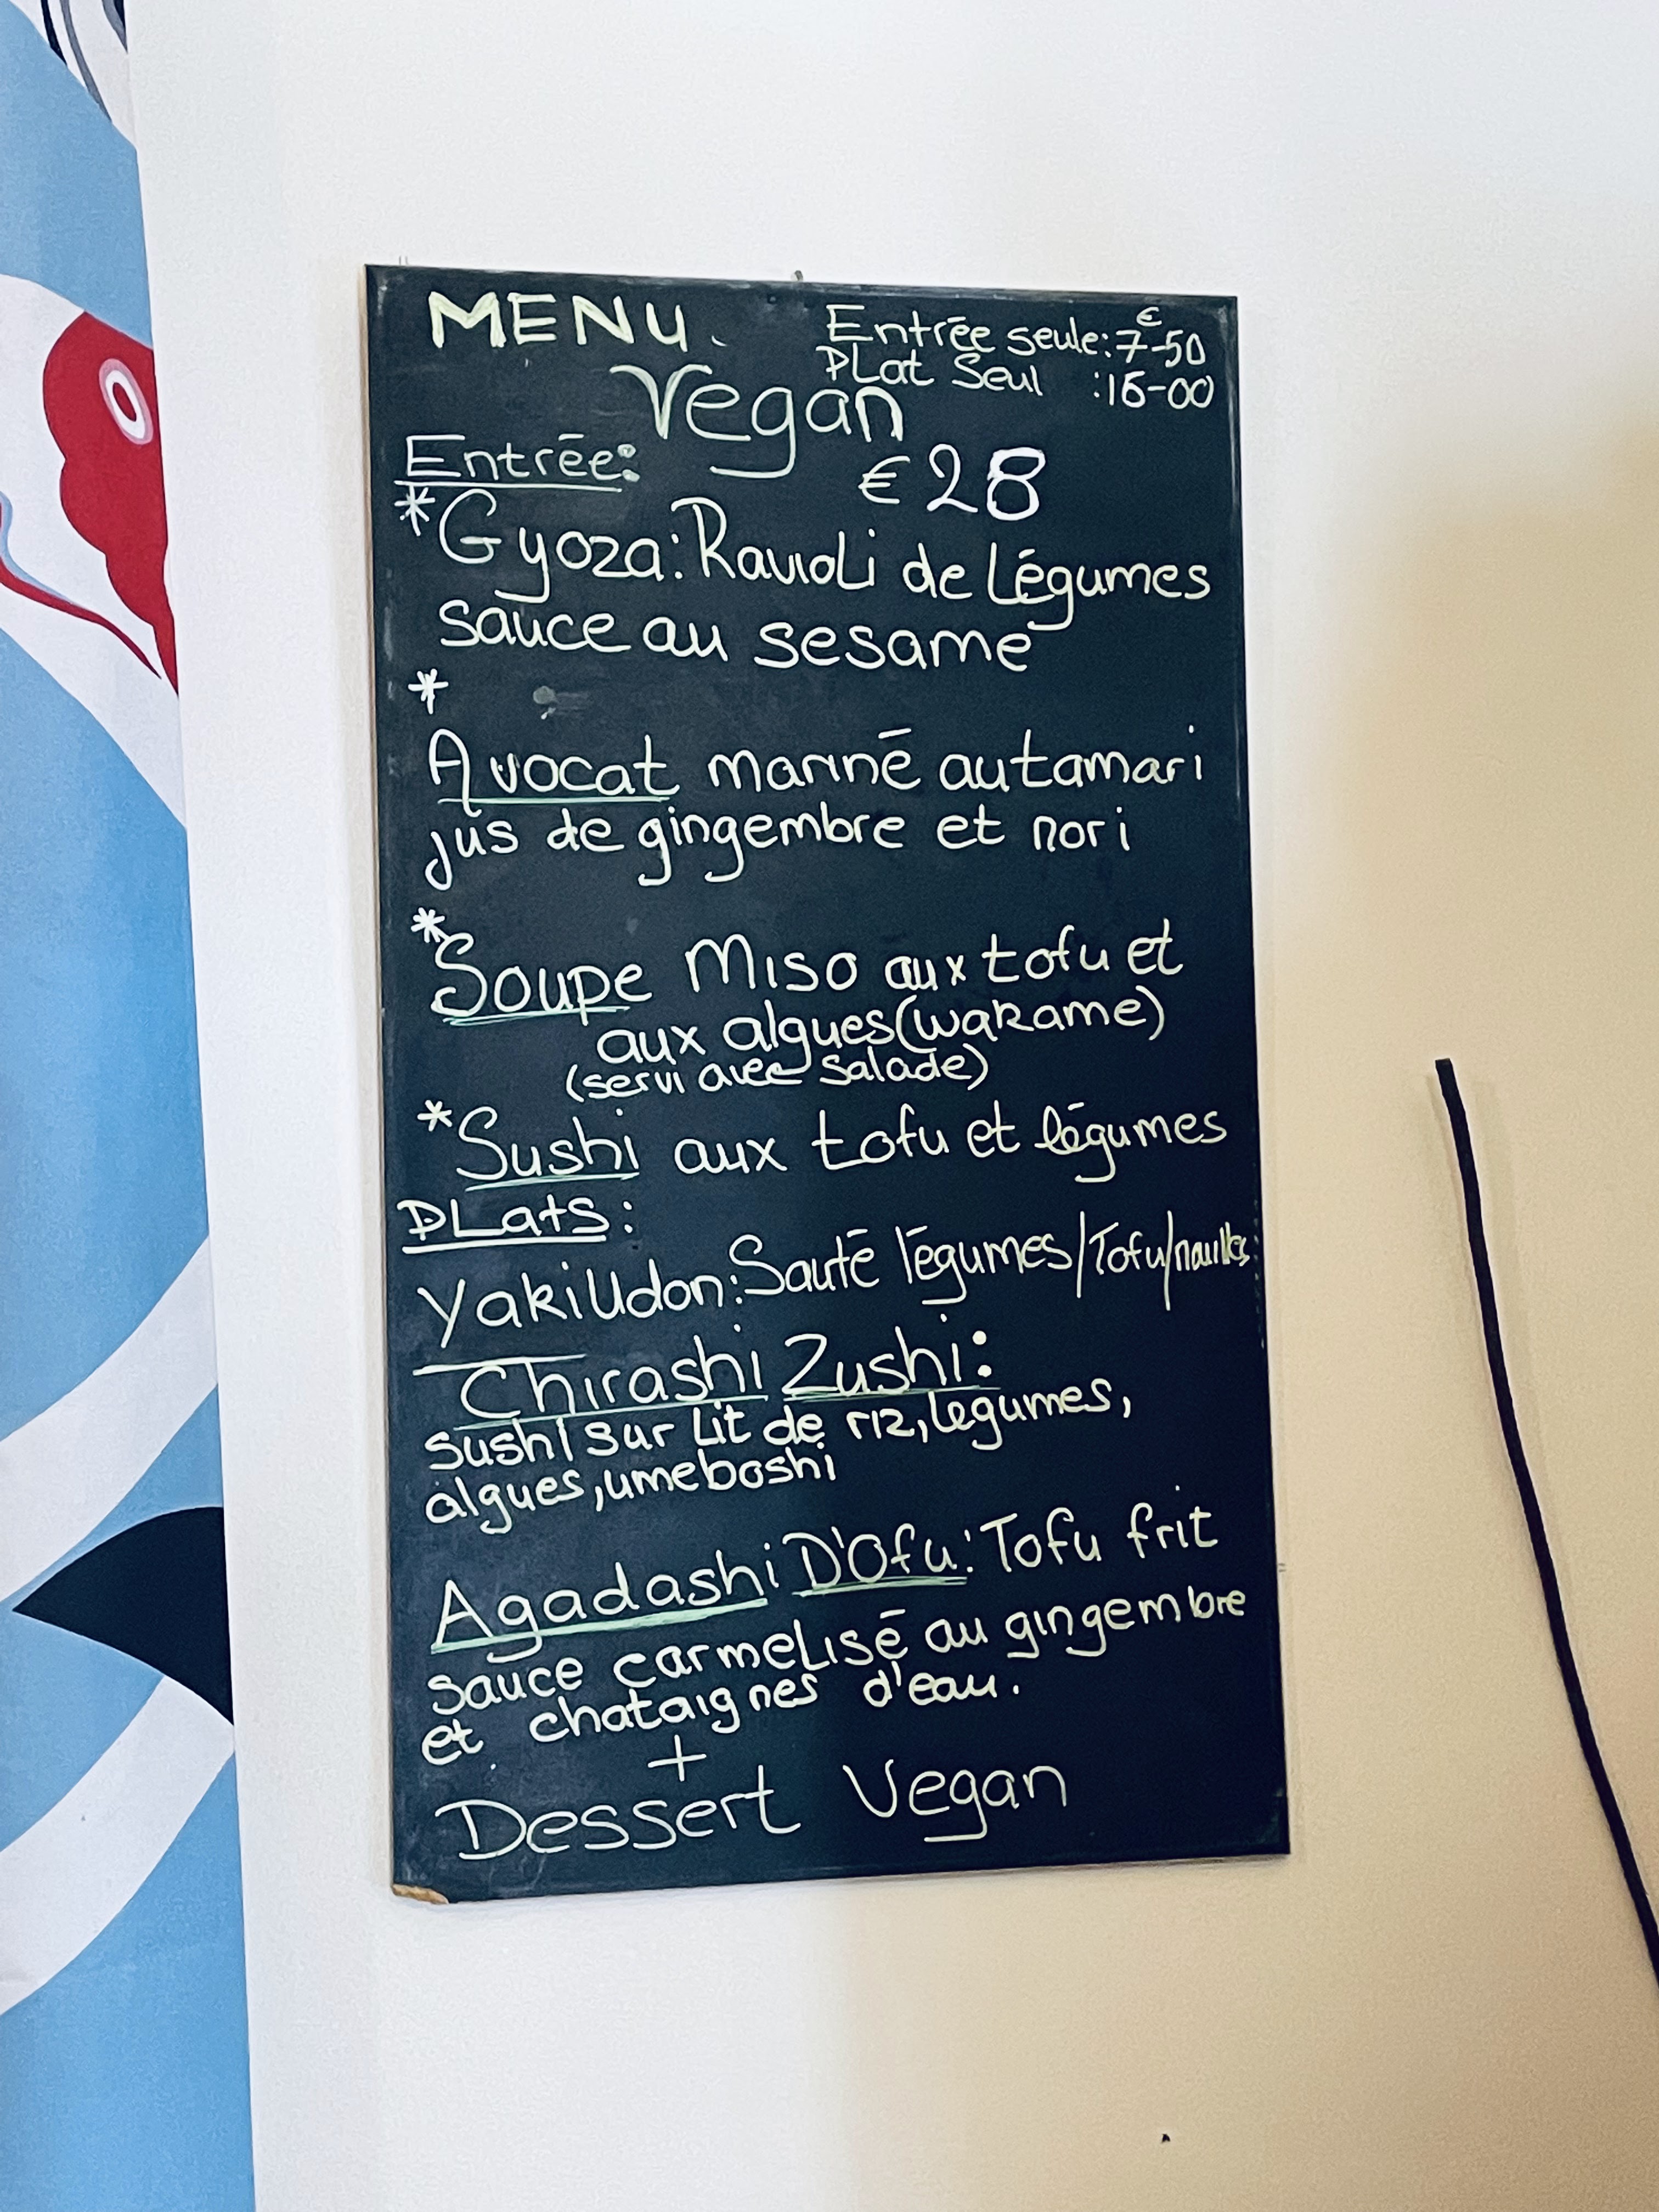 MENU.
Entrée seule: 7€-50
PLat Seul :16-00
Vegan
€28
Entrée:
*Gyoza: Ravioli de Légumes
sauce au sesame
*
Avocat mariné au tamari
jus de gingembre et nori
*
Soupe Miso aux tofu et
aux algues (wakame)
(servi avec salade)
*Sushi aux tofu et légumes
PLats:
Yaki Udon: Sauté légumes/Tofu/
Chirashi Zushi:
sushi sur Lit de riz, legumes,
algues, umeboshi
Agadashi D'Ofu: Tofu frit
sauce carmeLisé au gingembre
et chataignes d'eau.
+
Dessert Vegan